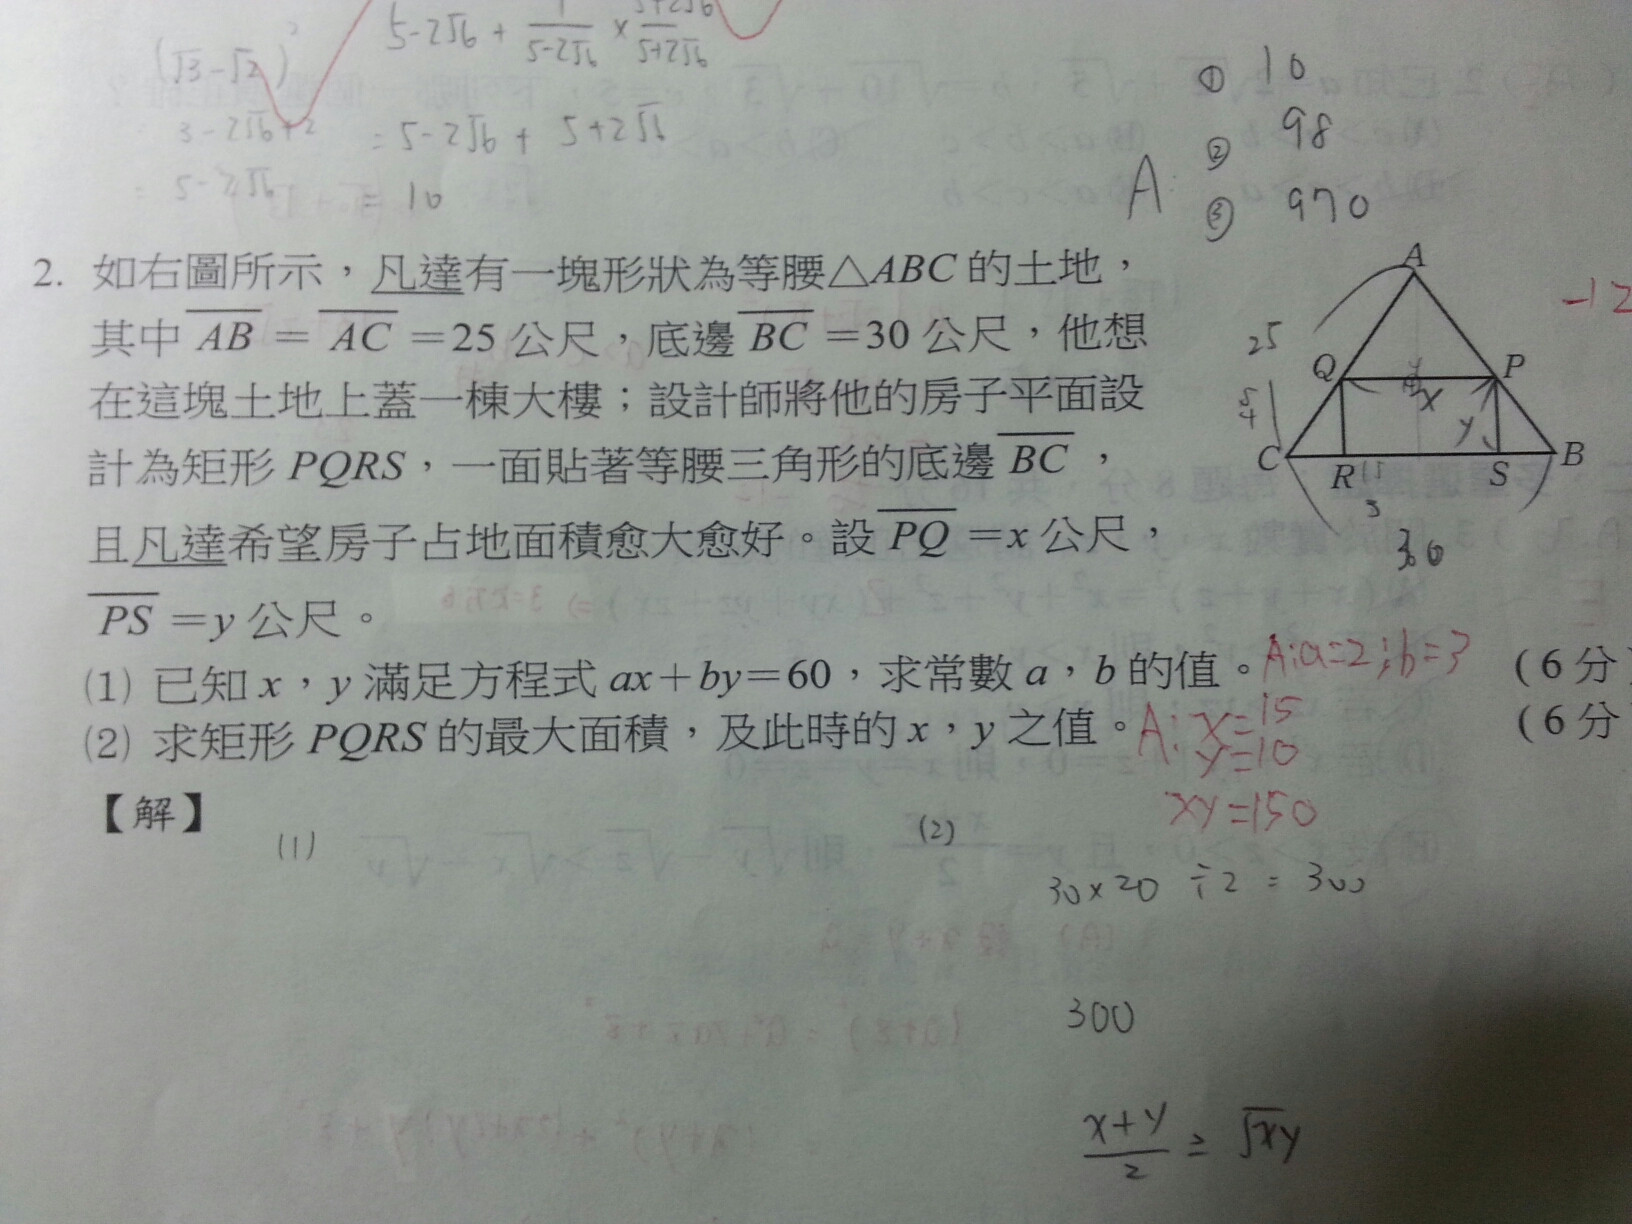 5-2√6 + 1/(5-2√6) × (5+2√6)/(5+2√6)
(√3-√2)²
3-2√6+2
= 5-2√6 + 5+2√6
= 5-2√6
= 10
A
① 10
② 98
③ 970
2. 如右圖所示，凡達有一塊形狀為等腰△ABC 的土地，
其中 AB = AC =25 公尺，底邊 BC =30 公尺，他想
在這塊土地上蓋一棟大樓；設計師將他的房子平面設
計為矩形 PQRS，一面貼著等腰三角形的底邊 BC，
且凡達希望房子占地面積愈大愈好。設 PQ =x 公尺，
PS =y 公尺。
A
25
Q P
x
y
5
4
C R S B
3
30
-12
(1) 已知 x，y 滿足方程式 ax+by=60，求常數 a，b 的值。A:a=2;b=3 (6 分)
(2) 求矩形 PQRS 的最大面積，及此時的 x，y 之值。A: x=15 (6 分
y=10
xy=150
【解】
(1)
(2)
30×20 ÷2 = 300
300
(x+y)/2 ≥ √xy